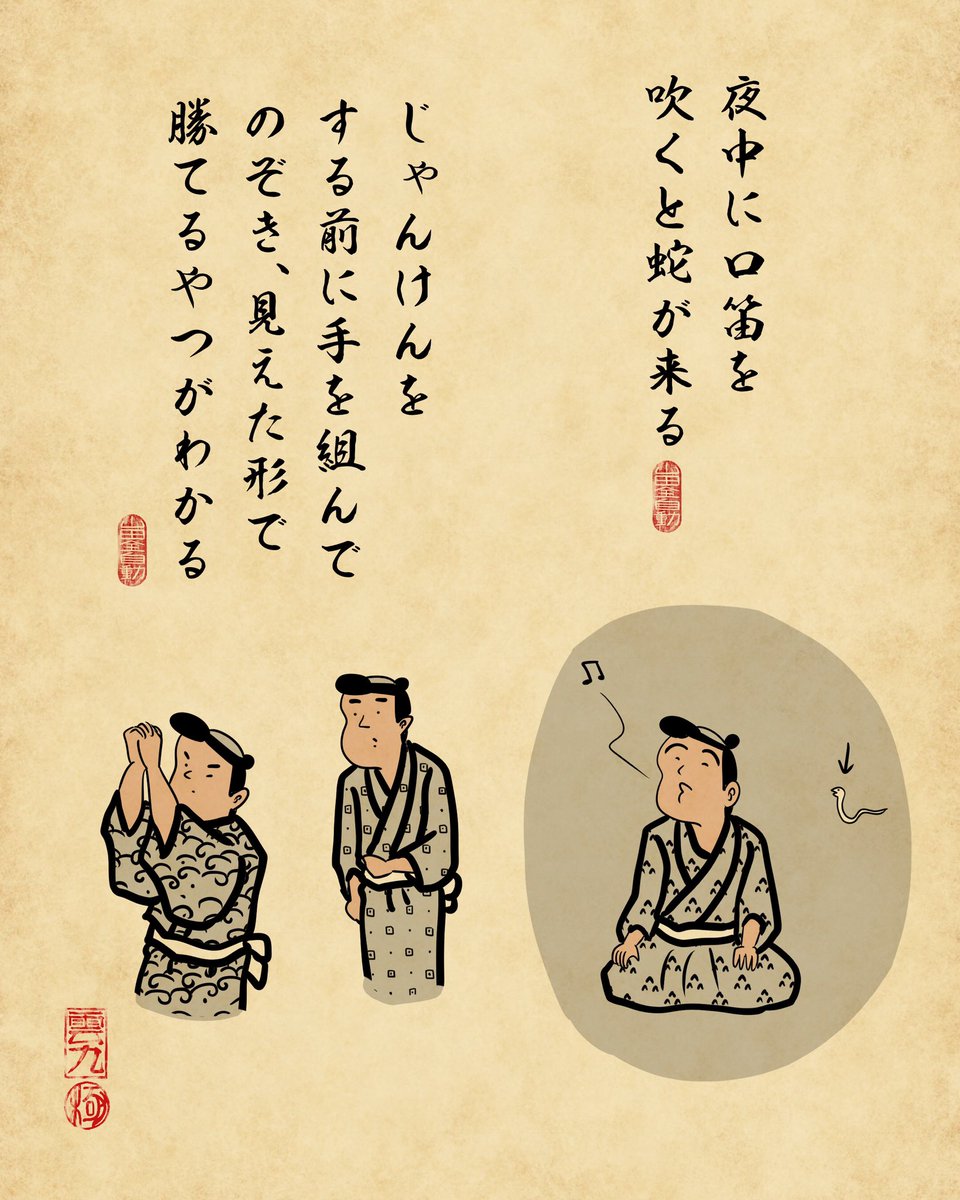 夜中に口笛を
吹くと蛇が来る
じゃんけんを
する前に手を組んで
のぞき、見えた形で
勝てるやつがわかる